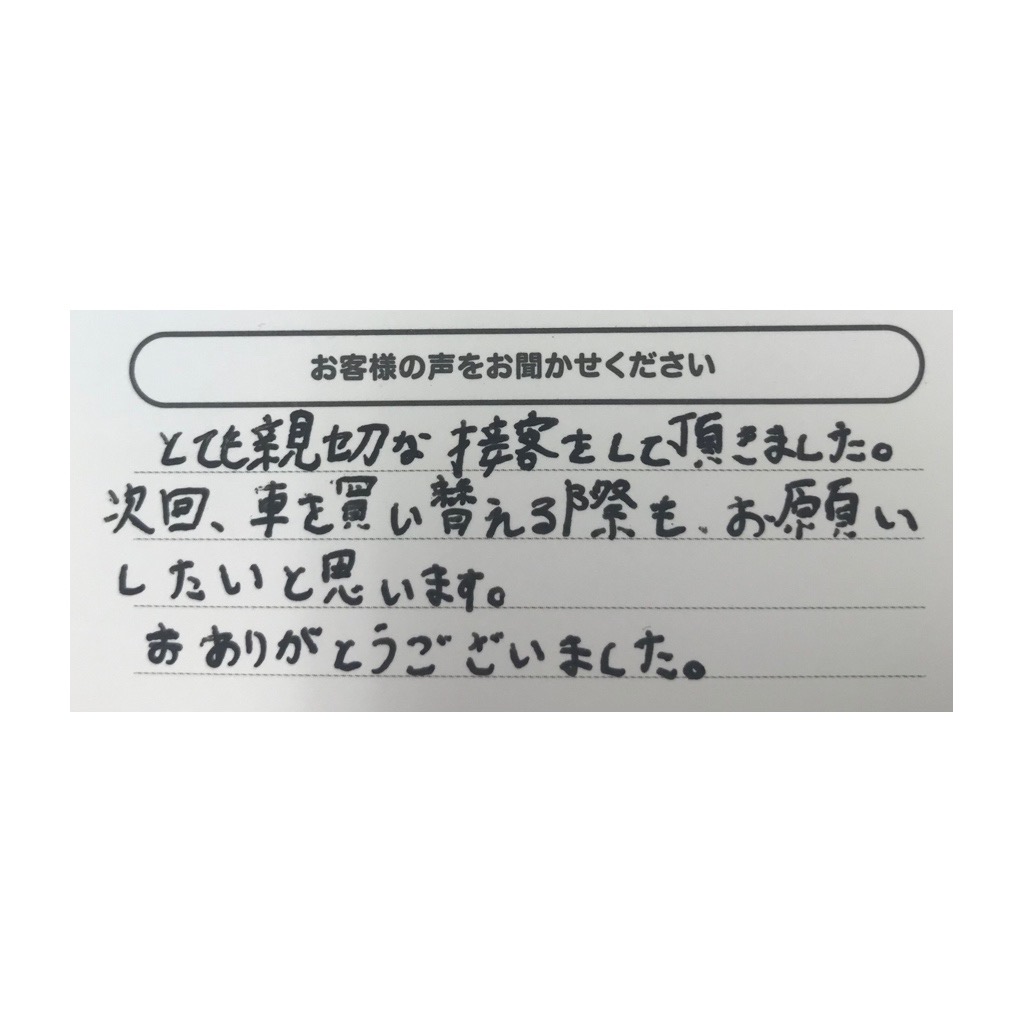 お客様の声をお聞かせください
とても親切な接客をして頂きました。
次回、車を買い替える際も、お願い
したいと思います。
おありがとうございました。